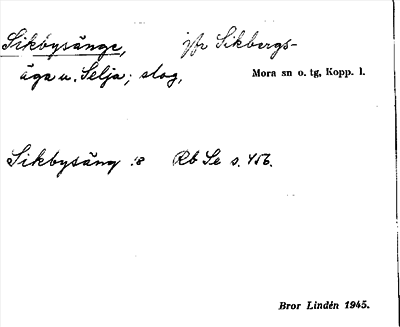 Sikbysänge, jfr Sikbergs-
äga u. Selja; slog,
Mora sn o. tg, Kopp. l.
Sikbysäng :s Rb Se s. 456.
Bror Lindén 1945.